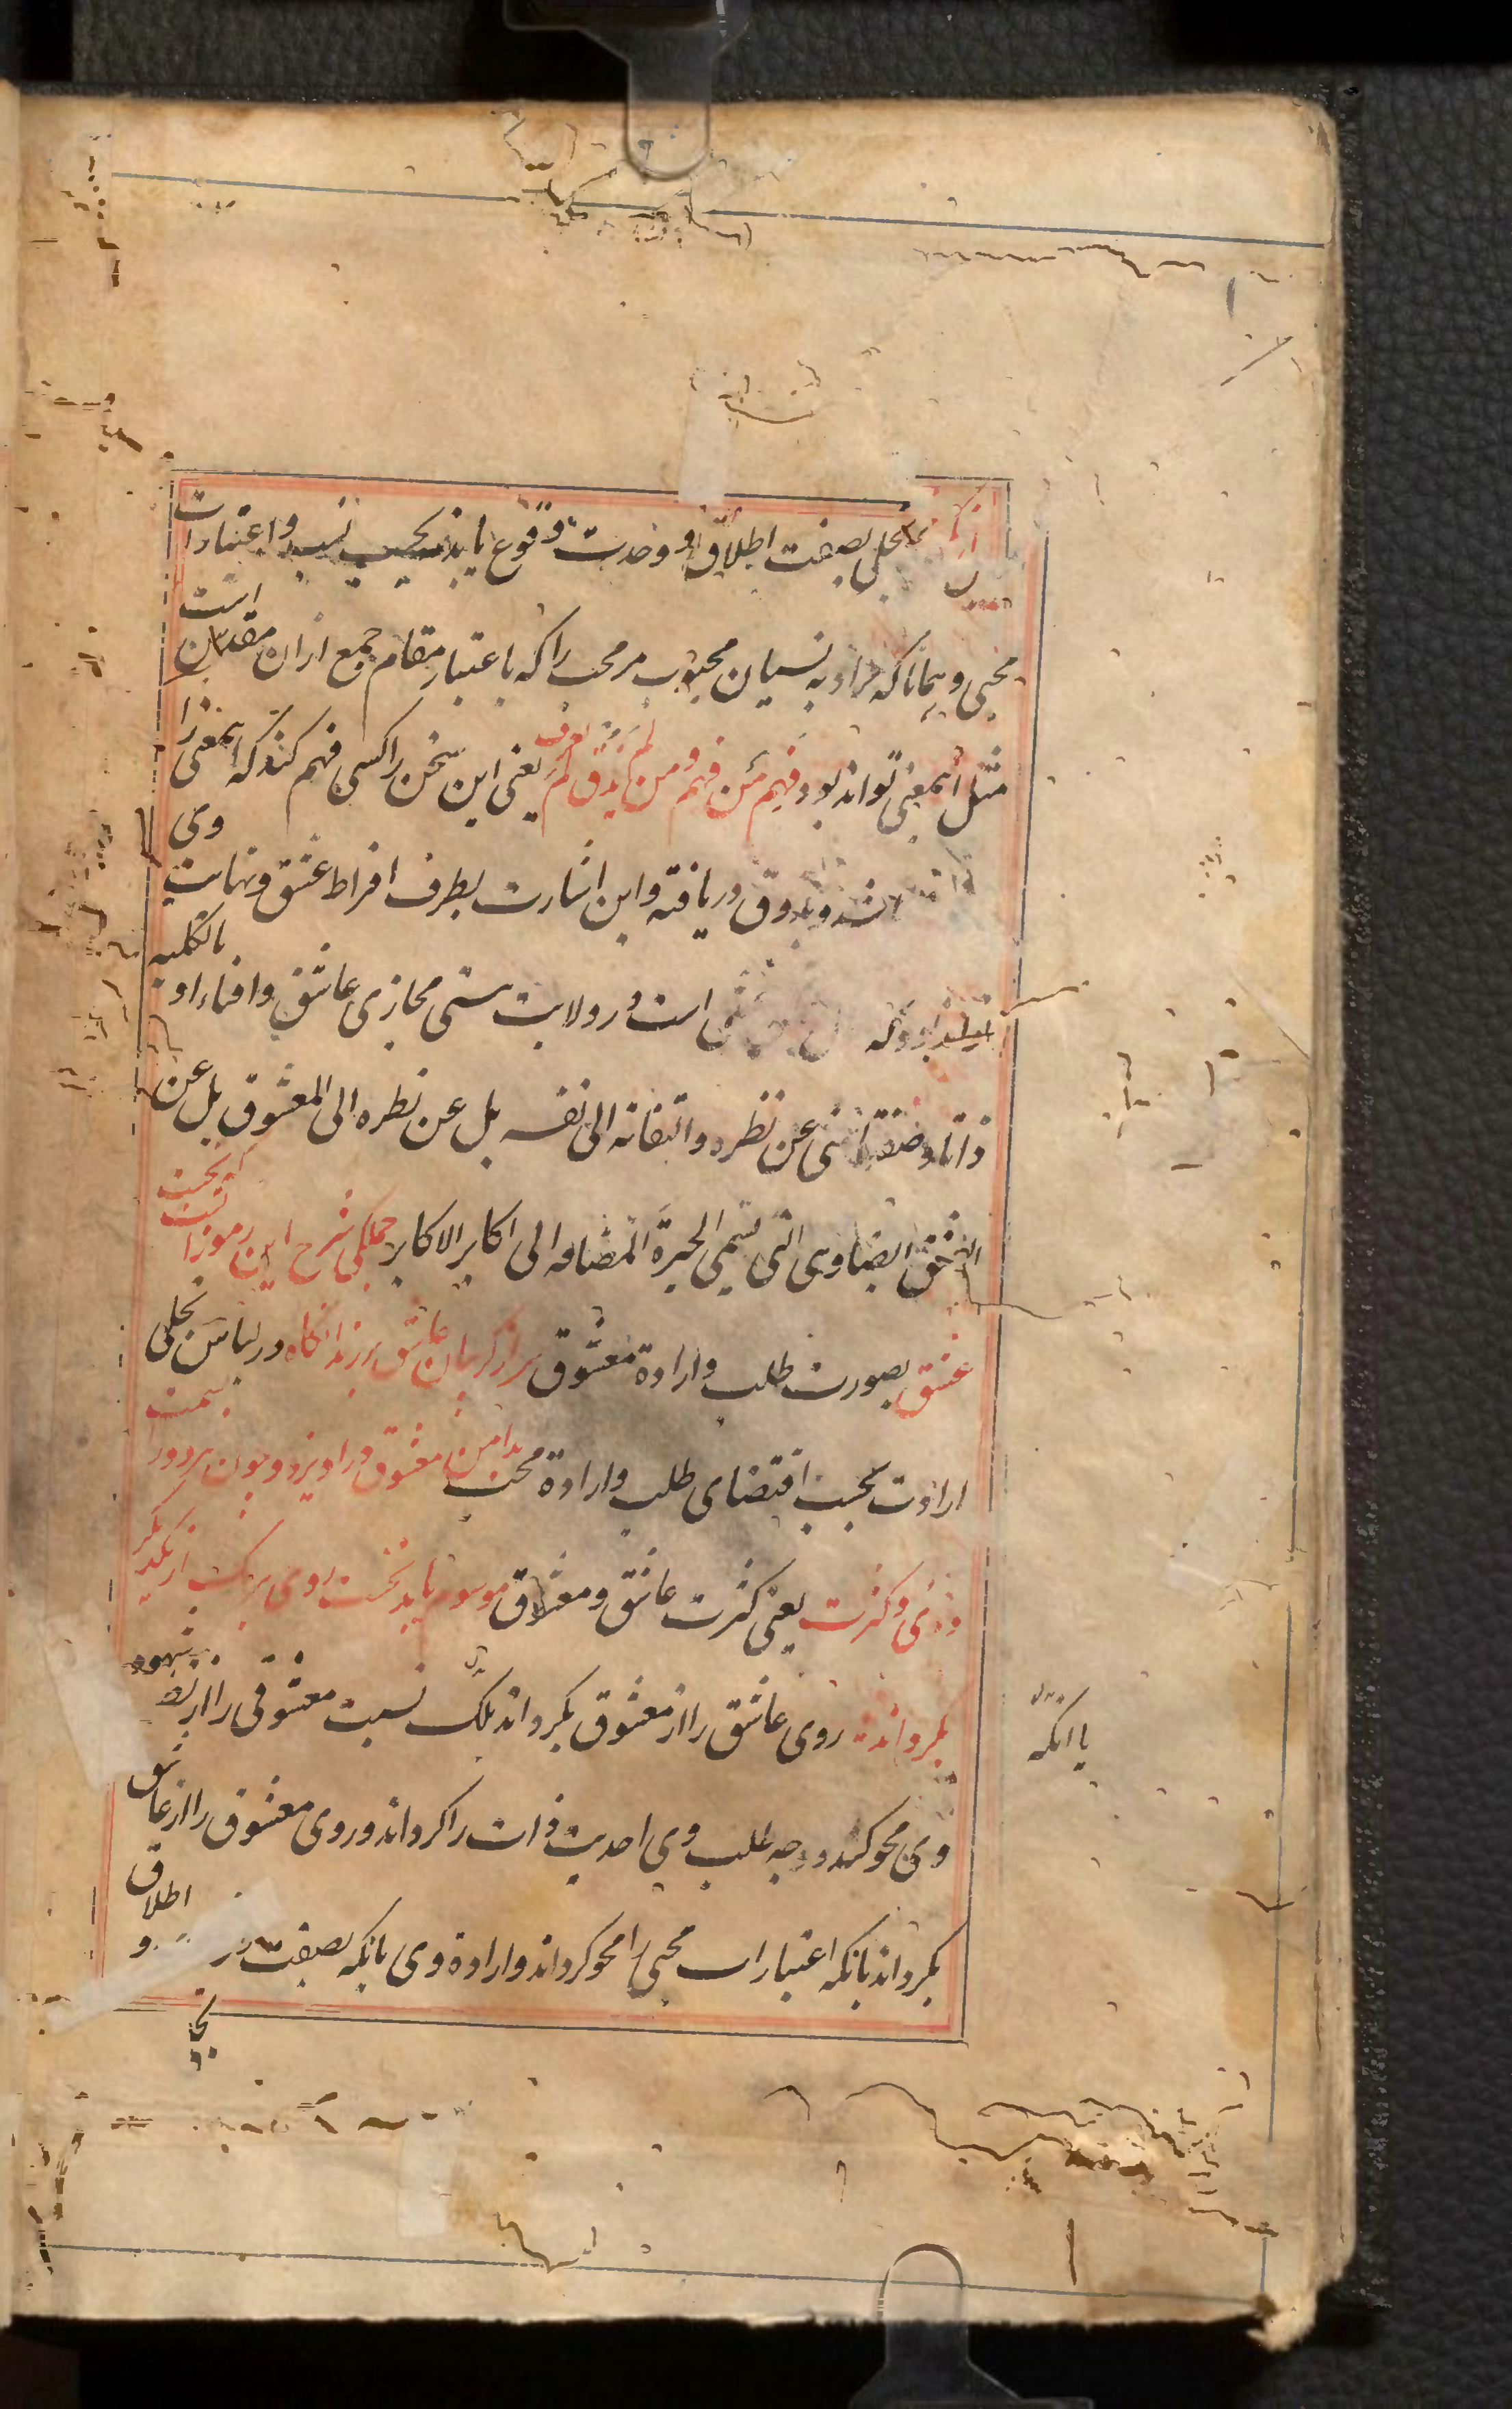 تجلی بصفت اطلاق و وحدت وقوع یابد بحسب نسب و اعتبارات
محبی و همانا که مراد به نسیان محبوب مر محب را که باعتبار مقام جمع ازان مقدس است
مثل اینمعنی تواند بود فهم من فهم و من لم یذق لم یعرف یعنی این سخن را کسی فهم کند که اینمعنی را
و بذوق دریافته و این اشارت بطرف افراط عشق و نهایت وی
تواند بود که است در ولایت هستی مجازی عاشق و افناء او بالکلیه
ذاتا و صفة اعنی عن نظره و التفاته الی نفسه بل عن نظره الی المعشوق بل عن
العشق ایضا وهی التی تسمی الحیرة المضافه الی اکابر الاکابر جملگی شرح این رموز آنست که بحسب
عشق بصورت طلب و ارادة معشوق سر از گریبان عاشق برزند آنگاه در لباس تجلی
ارادت بحسب اقتضای طلب و ارادة محب بدامن معشوق در آویزد و چون هر دو را بسمت
دوئی و کثرت یعنی کثرت عاشق و معشوق موسوم یابد نخست روی هر یک از یکدیگر
بگرداند روی عاشق را از معشوق بگرداند بلکه نسبت معشوقی را از نظر شهود
وی محو کند و وجه طلب وی احدیت ذات را گرداند و روی معشوق را از عاشق
بگرداند بانکه اعتبارات محبی را محو گرداند و ارادة وی بانکه بصفت اطلاق و
یا آنکه